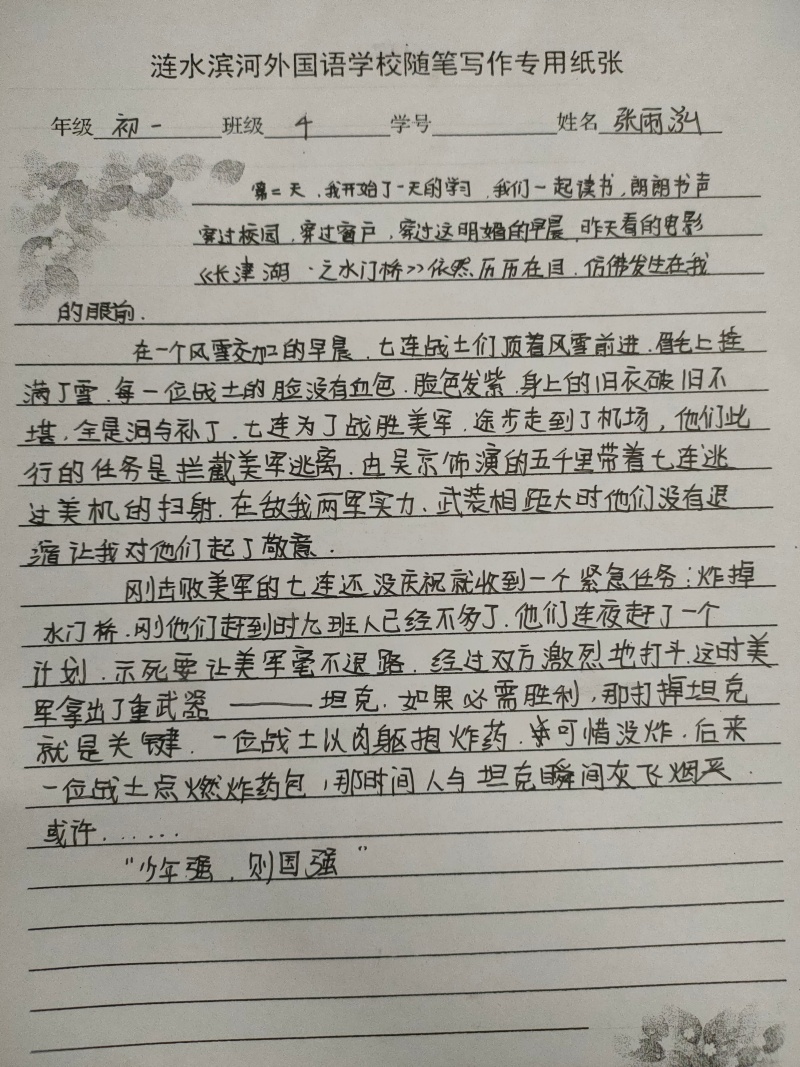 涟水滨河外国语学校随笔写作专用纸张
年级 初一 班级 4 学号 姓名 张雨泓
第二天，我开始了一天的学习，我们一起读书，朗朗书声
穿过校园，穿过窗户，穿过这明媚的早晨，昨天看的电影
《长津湖·之水门桥》依然历历在目，仿佛发生在我
的眼前.
在一个风雪交加的早晨，七连战士们顶着风雪前进，眉毛上挂
满了雪，每一位战士的脸没有血色，脸色发紫，身上的旧衣破旧不
堪，全是洞与补丁，七连为了战胜美军，途步走到了机场，他们此
行的任务是拦截美军逃离，由吴京饰演的五千里带着七连逃
过美机的扫射.在敌我两军实力、武装相距大时他们没有退
缩让我对他们起了敬意.
刚击败美军的七连还没庆祝就收到一个紧急任务：炸掉
水门桥.刚他们赶到时九班人已经不多了，他们连夜赶了一个
计划，示死要让美军毫不退路，经过双方激烈地打斗.这时美
军拿出了重武器——坦克，如果必需胜利，那打掉坦克
就是关键，一位战士以肉躯抱炸药，可惜没炸，后来
一位战士点燃炸药包，那时间人与坦克瞬间灰飞烟灭.
或许......
“少年强，则国强”